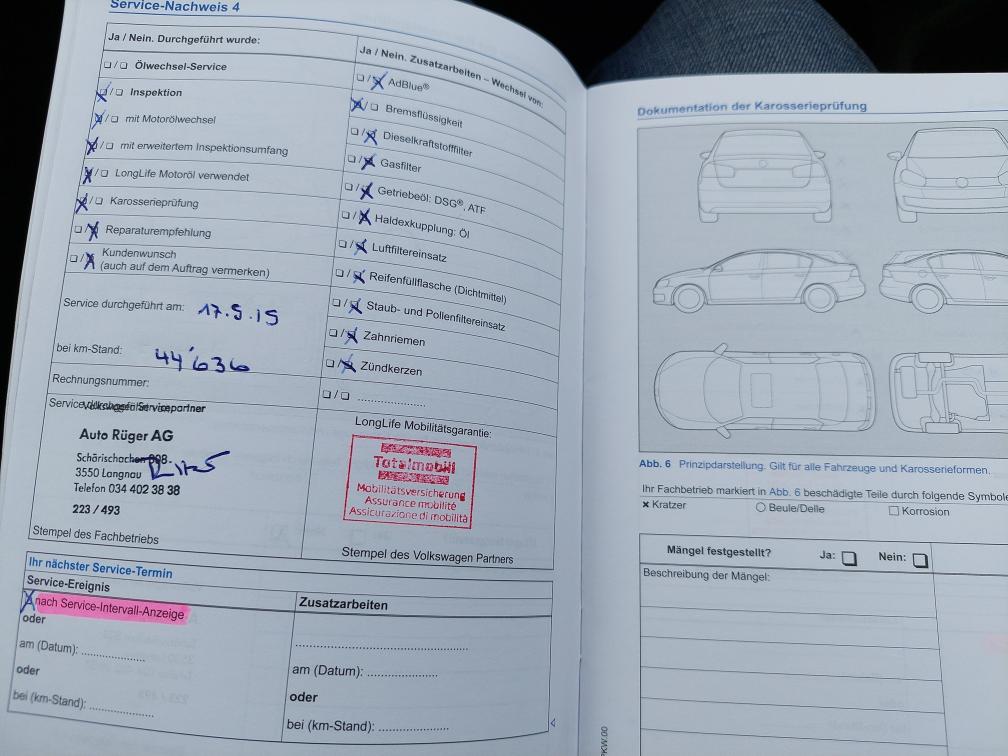 Service-Nachweis 4
Ja / Nein. Durchgeführt wurde:
❑/❑ Ölwechsel-Service
❑/❑ Inspektion
❑/❑ mit Motorölwechsel
❑/❑ mit erweitertem Inspektionsumfang
❑/❑ LongLife Motoröl verwendet
❑/❑ Karosserieprüfung
❑/❑ Reparaturempfehlung
❑/❑ Kundenwunsch
(auch auf dem Auftrag vermerken)
Service durchgeführt am: 17.9.15
bei km-Stand: 44'636
Rechnungsnummer:
Volkswagen Servicepartner
Auto Rüger AG
Schärischachen 808
3550 Langnau
Telefon 034 402 38 38
223 / 493
Stempel des Fachbetriebs
Ja / Nein. Zusatzarbeiten – Wechsel von:
❑/❑ AdBlue®
❑/❑ Bremsflüssigkeit
❑/❑ Dieselkraftstofffilter
❑/❑ Gasfilter
❑/❑ Getriebeöl: DSG®, ATF
❑/❑ Haldexkupplung: Öl
❑/❑ Luftfiltereinsatz
❑/❑ Reifenfüllflasche (Dichtmittel)
❑/❑ Staub- und Pollenfiltereinsatz
❑/❑ Zahnriemen
❑/❑ Zündkerzen
❑/❑ ......................
LongLife Mobilitätsgarantie:
Totalmobil!
Mobilitätsversicherung
Assurance mobilité
Assicurazione di mobilità
Stempel des Volkswagen Partners
Ihr nächster Service-Termin
Service-Ereignis
nach Service-Intervall-Anzeige
oder
am (Datum): ....................
oder
bei (km-Stand): ....................
Zusatzarbeiten
......................................................
am (Datum): ......................
oder
bei (km-Stand): ......................
Dokumentation der Karosserieprüfung
Abb. 6 Prinzipdarstellung. Gilt für alle Fahrzeuge und Karosserieformen.
Ihr Fachbetrieb markiert in Abb. 6 beschädigte Teile durch folgende Symbole
× Kratzer ○ Beule/Delle ❑ Korrosion
Mängel festgestellt? Ja: ❑ Nein: ❑
Beschreibung der Mängel: